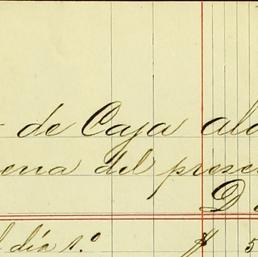 de Caja al
ena del prese
D
día 1.º $ 5